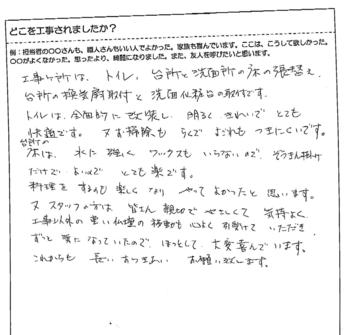 どこを工事されましたか？
例：担当者の〇〇さんも、職人さんもいい人でよかった。家族も喜んでいます。ここは、こうして欲しかった。
〇〇がよくなかった。思ったより、綺麗になりました。また、友人を呼びたいと思います。
工事ヶ所は、トイレ、台所と洗面所の床の張替え、
台所の換気扇取付と洗面化粧台の取付です。
トイレは、全面的に改装し、明るく きれいで とても
快適です。 又お掃除も らくで よごれも つきにくいです。
台所の
床は、水に強く ワックスも いらないので、ぞうきん掛け
だけで よいので とても楽です。
料理を するのも 楽しく なり やって よかったと 思います。
又 スタッフの方は 皆さん 親切で やさしくて 気持よく、
工事以外の 重い 仏壇の 移動も 心よく お受けて いただき、
ずっと 気に なっていたので、ほっとして、大変喜んでいます。
これからも 長い おつきあい お願い致します。